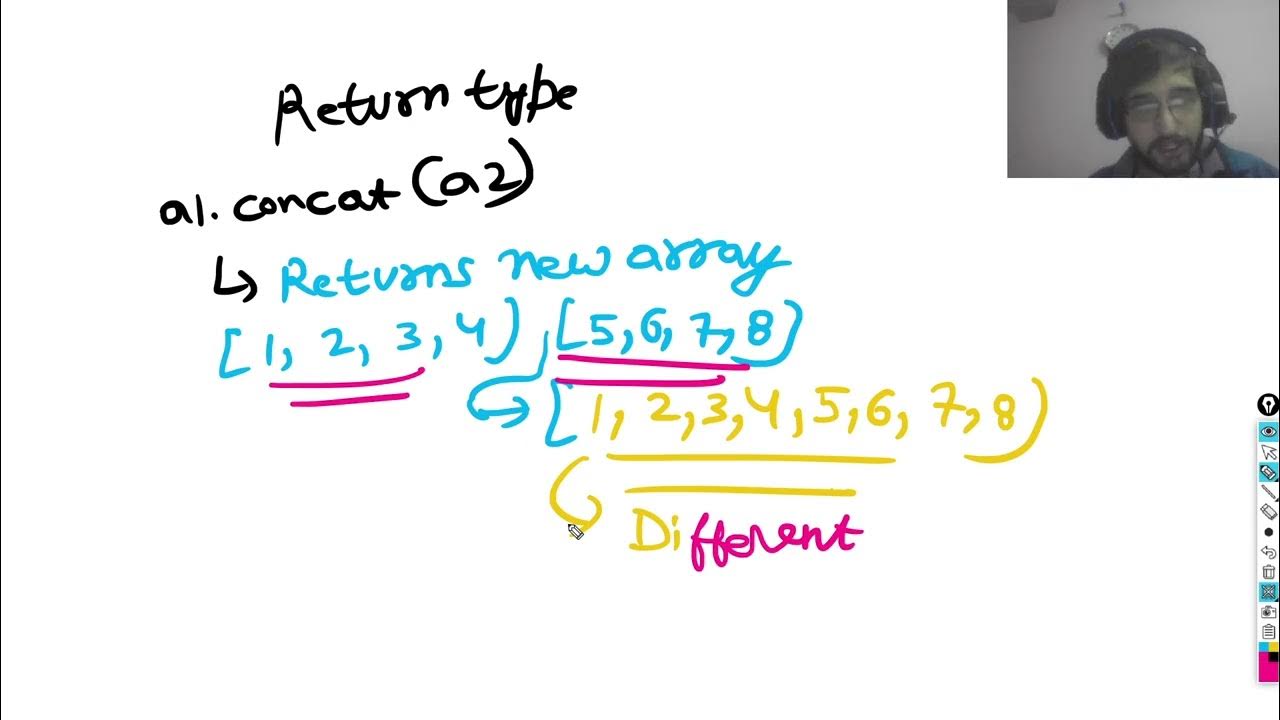 Return type
a1.concat(a2)
↳ Returns new array
[1, 2, 3, 4), [5, 6, 7, 8)
[1, 2, 3, 4, 5, 6, 7, 8)
Different